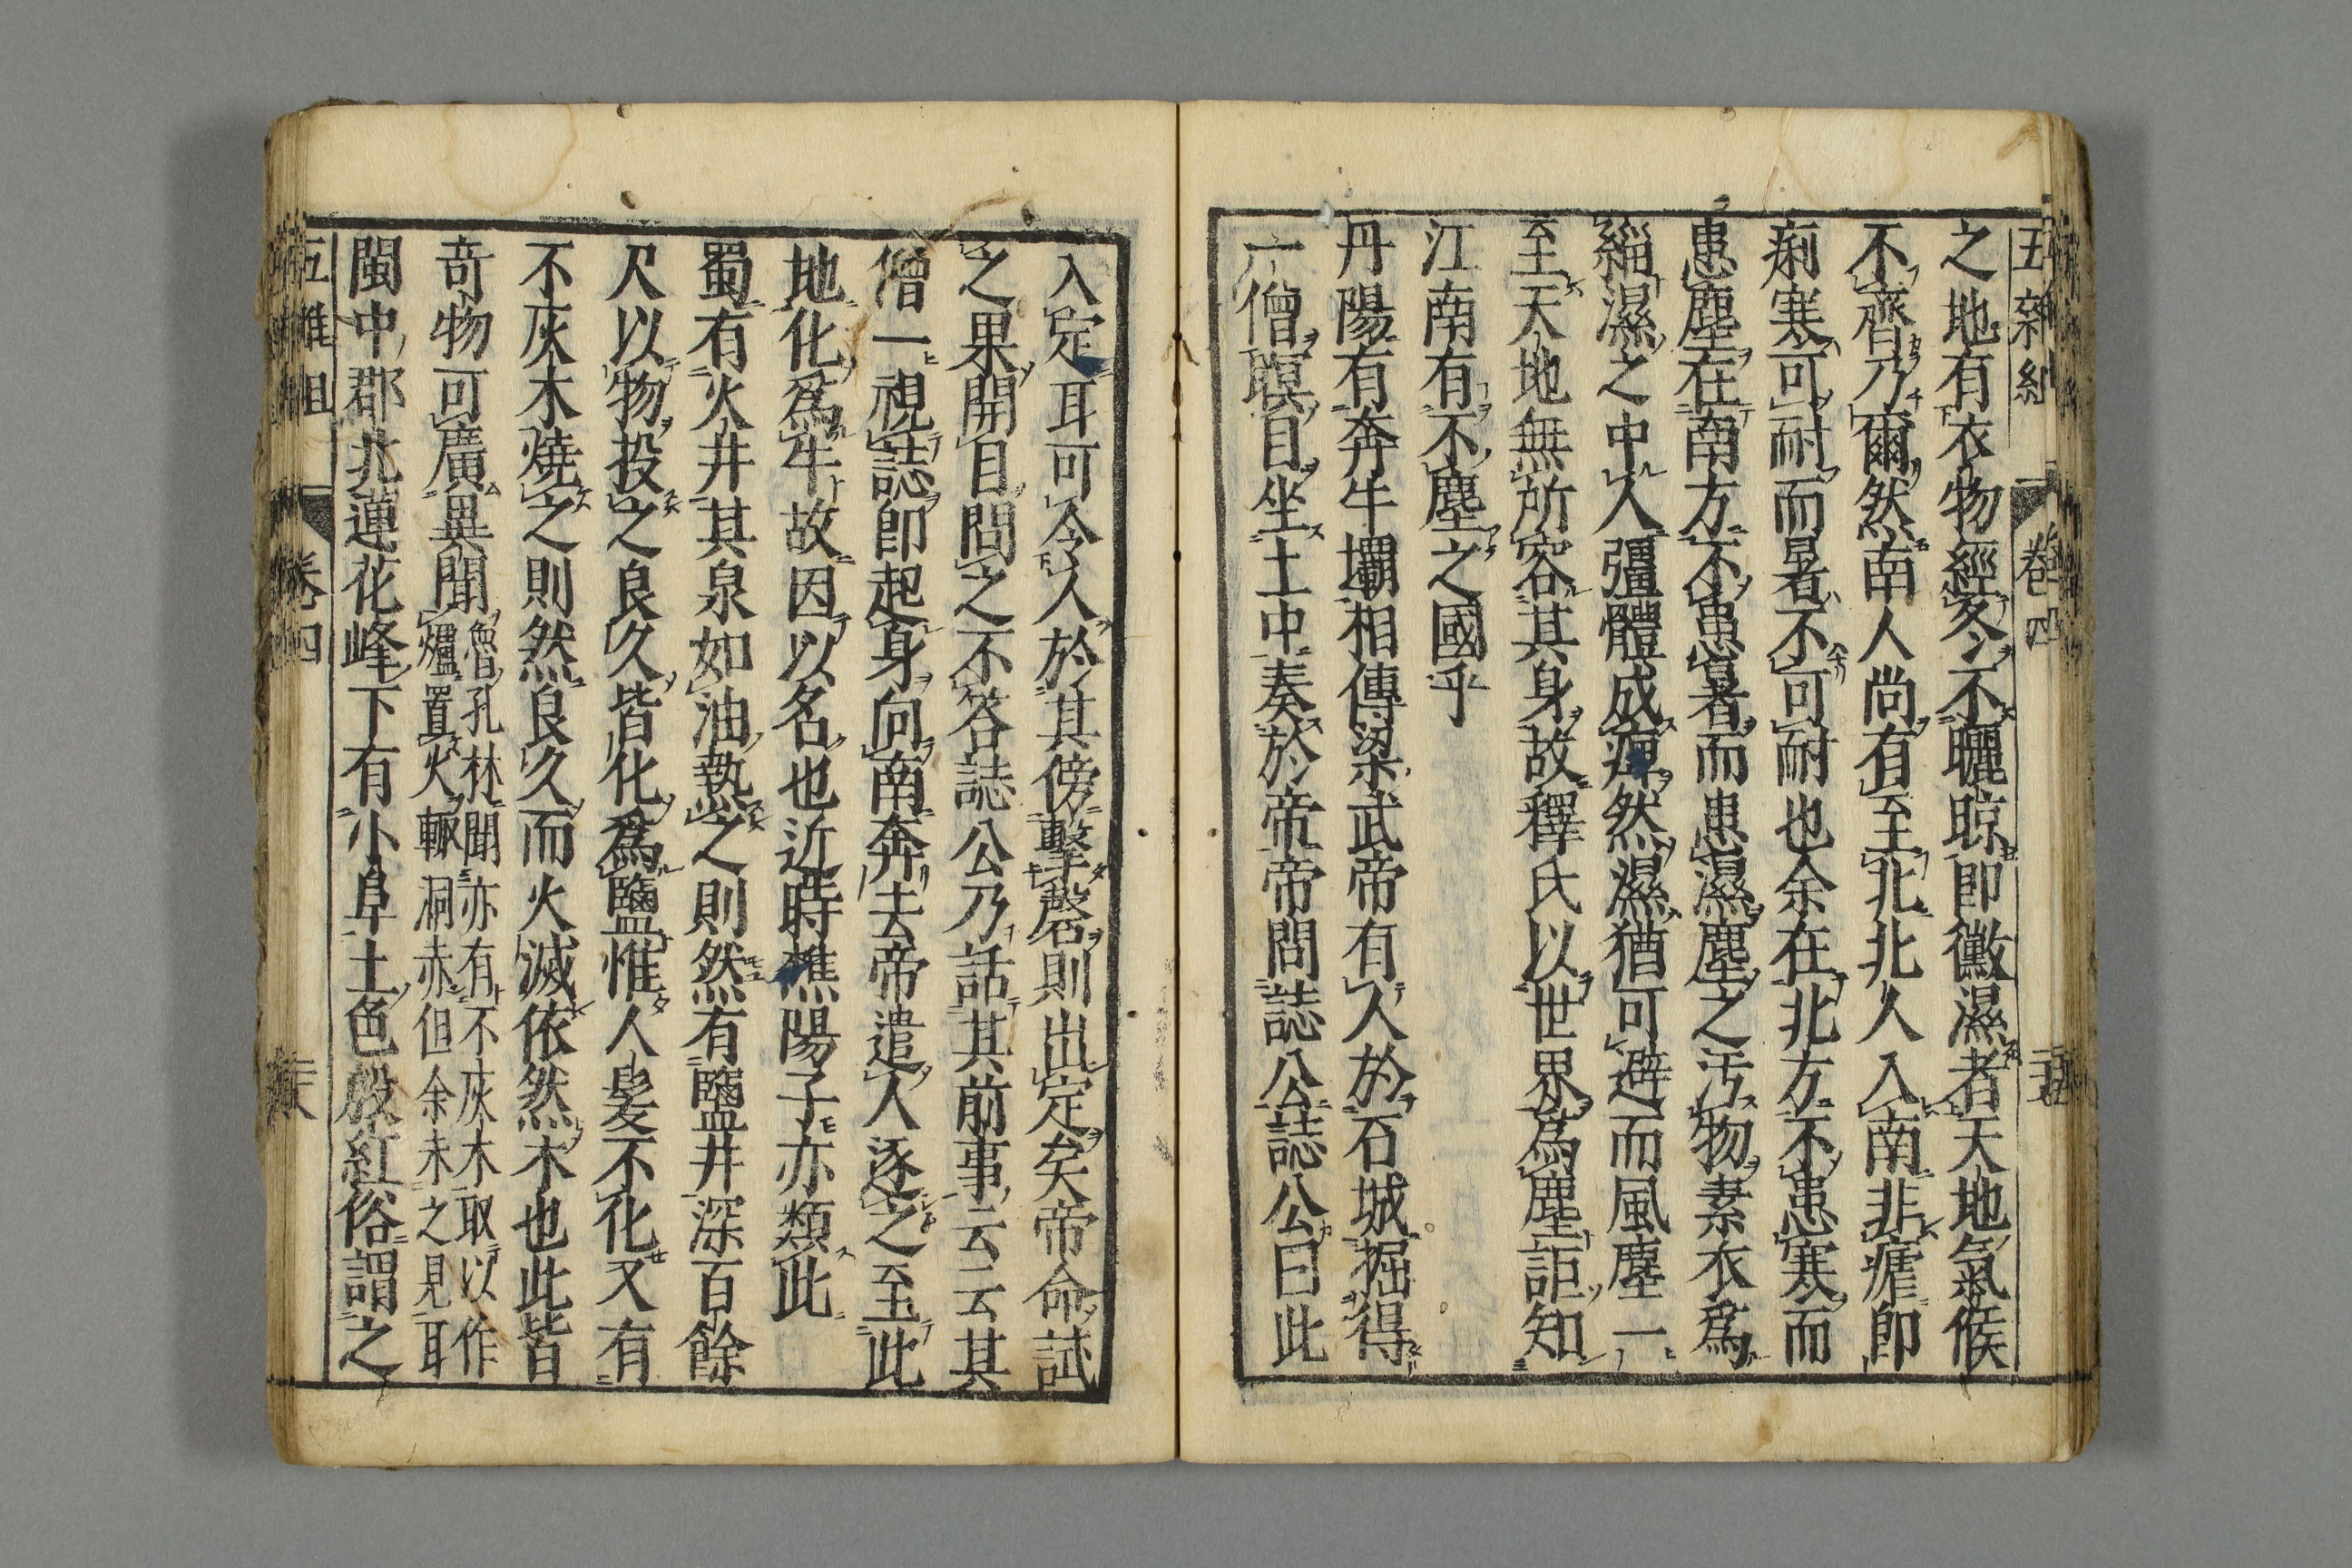 五雜組 卷四
之地有衣物經冬不曬晾即黴濕者天地氣候
不齊乃爾然南人尚有至北北人入南非瘧即
痢寒可耐而暑不可耐也余在北方不患寒而
患塵在南方不患暑而患濕塵之汚物素衣為
緇濕之中人彊體成痺然濕猶可避而風塵一
至天地無所容其身故釋氏以世界為塵詎知
江南有不塵之國乎
丹陽有奔牛壩相傳梁武帝有人於石城掘得
一僧瞑目坐土中奏於帝帝問誌公誌公曰此
入定耳可令人於其傍擊磬則出定矣帝命試
之果開目問之不答誌公乃話其前事云云其
僧一視誌即起身向南奔去帝遣人逐之至此
地化為牛故因以名也近時樵陽子亦類此
蜀有火井其泉如油熱之則然有鹽井深百餘
尺以物投之良久皆化為鹽惟人髮不化又有
不灰木燒之則然良久而火滅依然木也此皆
奇物可廣異聞魯孔林聞亦有不灰木取以作
爐置火輒洞赤但余未之見耳
閩中郡北蓮花峰下有小阜土色殷紅俗謂之
五雜組 卷四